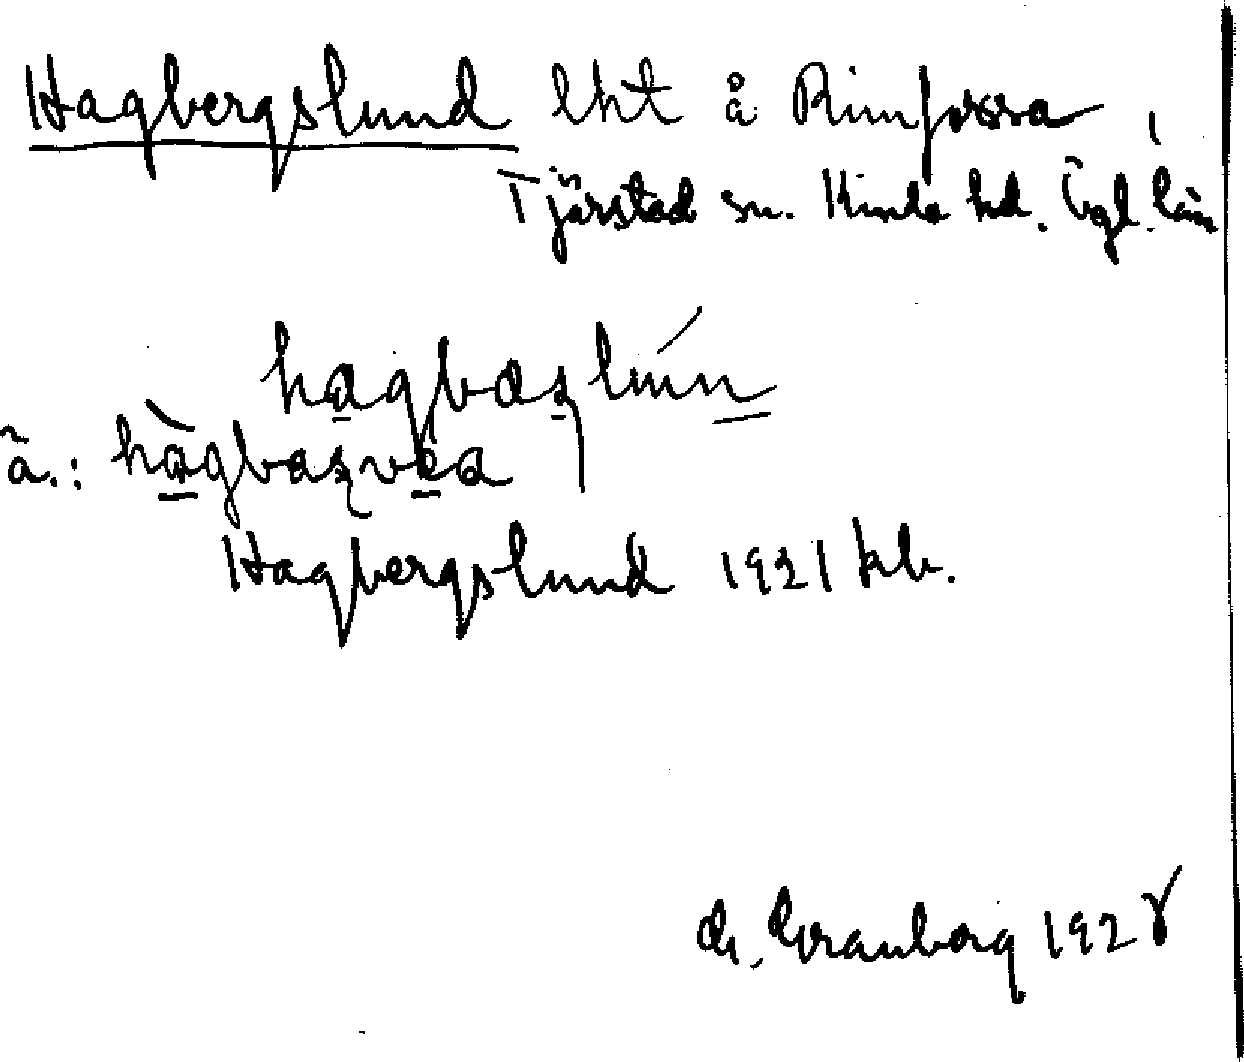 Hagbergslund lht å Rimforsa,
Tjärstad sn. Kinda hd. Ögl. län
hagbaslún
ä.: hàgbasvea
Hagbergslund 1921 kb.
G. Granberg 1928